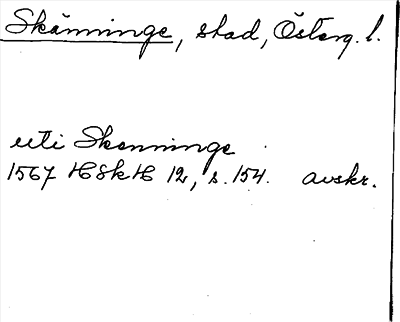 Skänninge, stad, Österg. l.
uti Skenninge
1567 HSkH 12, s. 154. avskr.